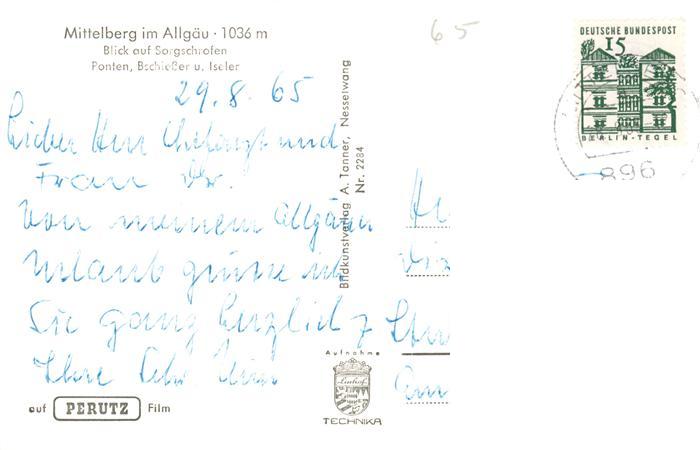 Mittelberg im Allgäu · 1036 m
Blick auf Sorgschrofen
Ponten, Bschießer u. Iseler
65
29.8.65
Lieber Herr Chefarzt und
Frau Dr.
Von meinem Allgäuer
Urlaub grüsse ich
Sie ganz herzlich
Ihre
auf PERUTZ Film
Bildkunstverlag A. Tanner, Nesselwang
Nr. 2284
Aufnahme
Linhof
TECHNIKA
DEUTSCHE BUNDESPOST
15
BERLIN-TEGEL
896